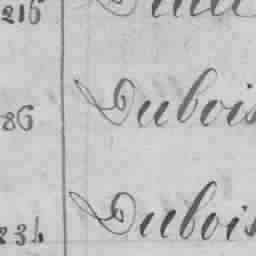 216
86 Dubois
234 Dubois